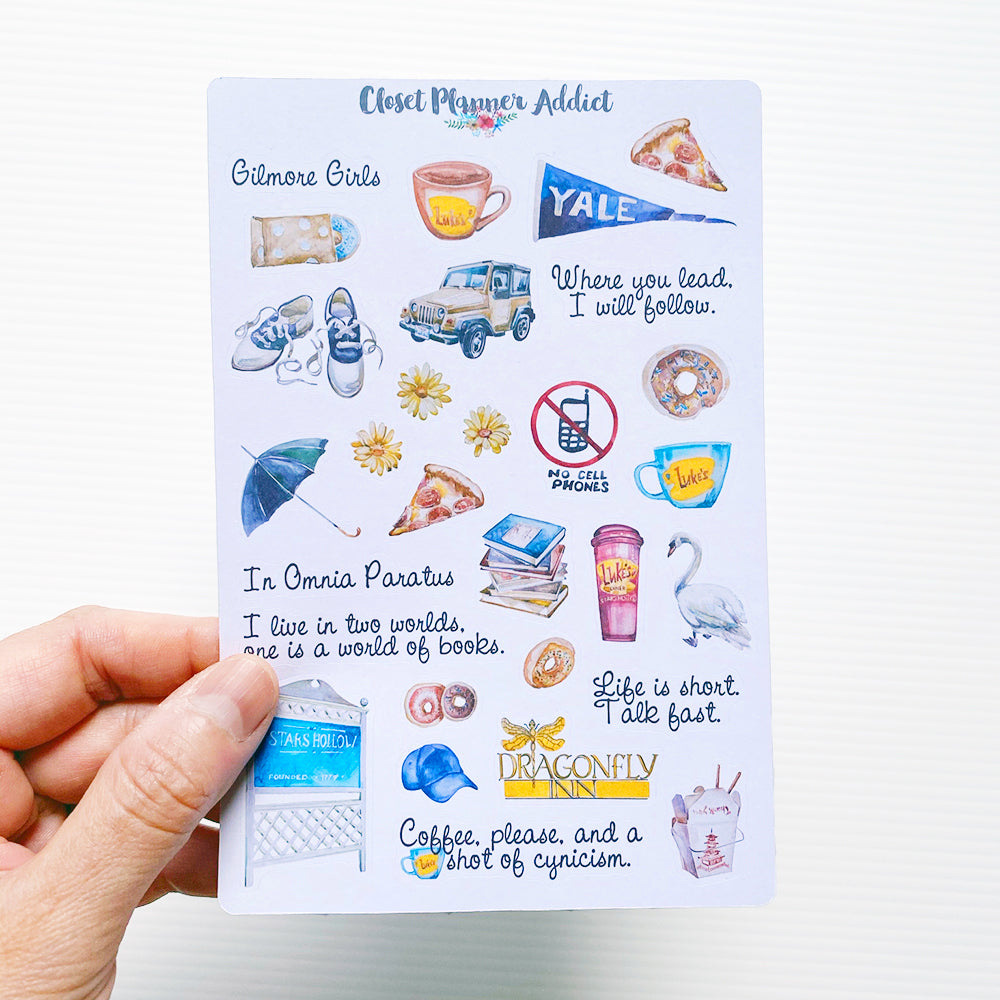 Closet Planner Addict
Gilmore Girls
Luke's
YALE
Where you lead,
I will follow.
NO CELL
PHONES
Luke's
In Omnia Paratus
LUKE'S
DINER
STARS HOLLOW
I live in two worlds,
one is a world of books.
Life is short.
Talk fast.
STARS HOLLOW
FOUNDED
DRAGONFLY
INN
Coffee, please, and a
shot of cynicism.
Luke's
Thank You